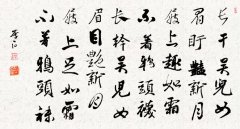 長干吳兒女
眉目豔新月
屐上足如霜
不著鴉頭襪
長幹吳兒女
眉目艷新月
屐上足如霜
不著鴉頭襪